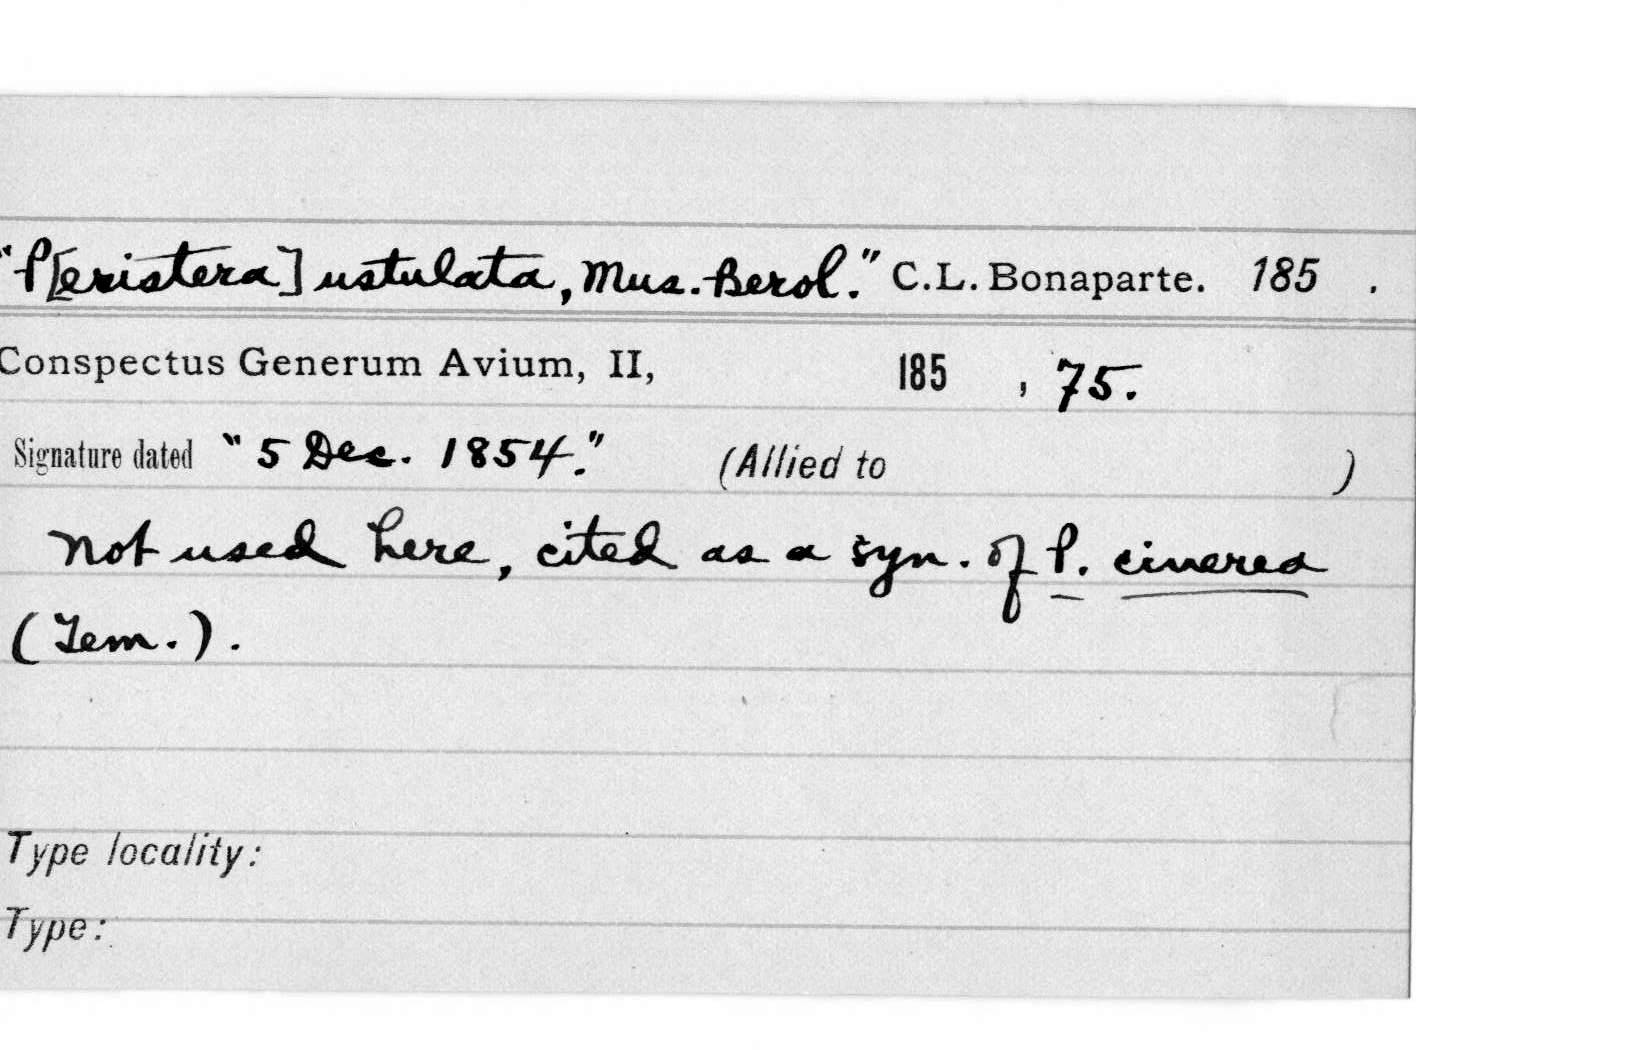 "P[eristera] ustulata, Mus. Berol." C.L. Bonaparte. 185 .
Conspectus Generum Avium, II, 185 , 75.
Signature dated "5 Dec. 1854." (Allied to )
Not used here, cited as a syn. of P. cinerea
(Tem.).
Type locality:
Type: